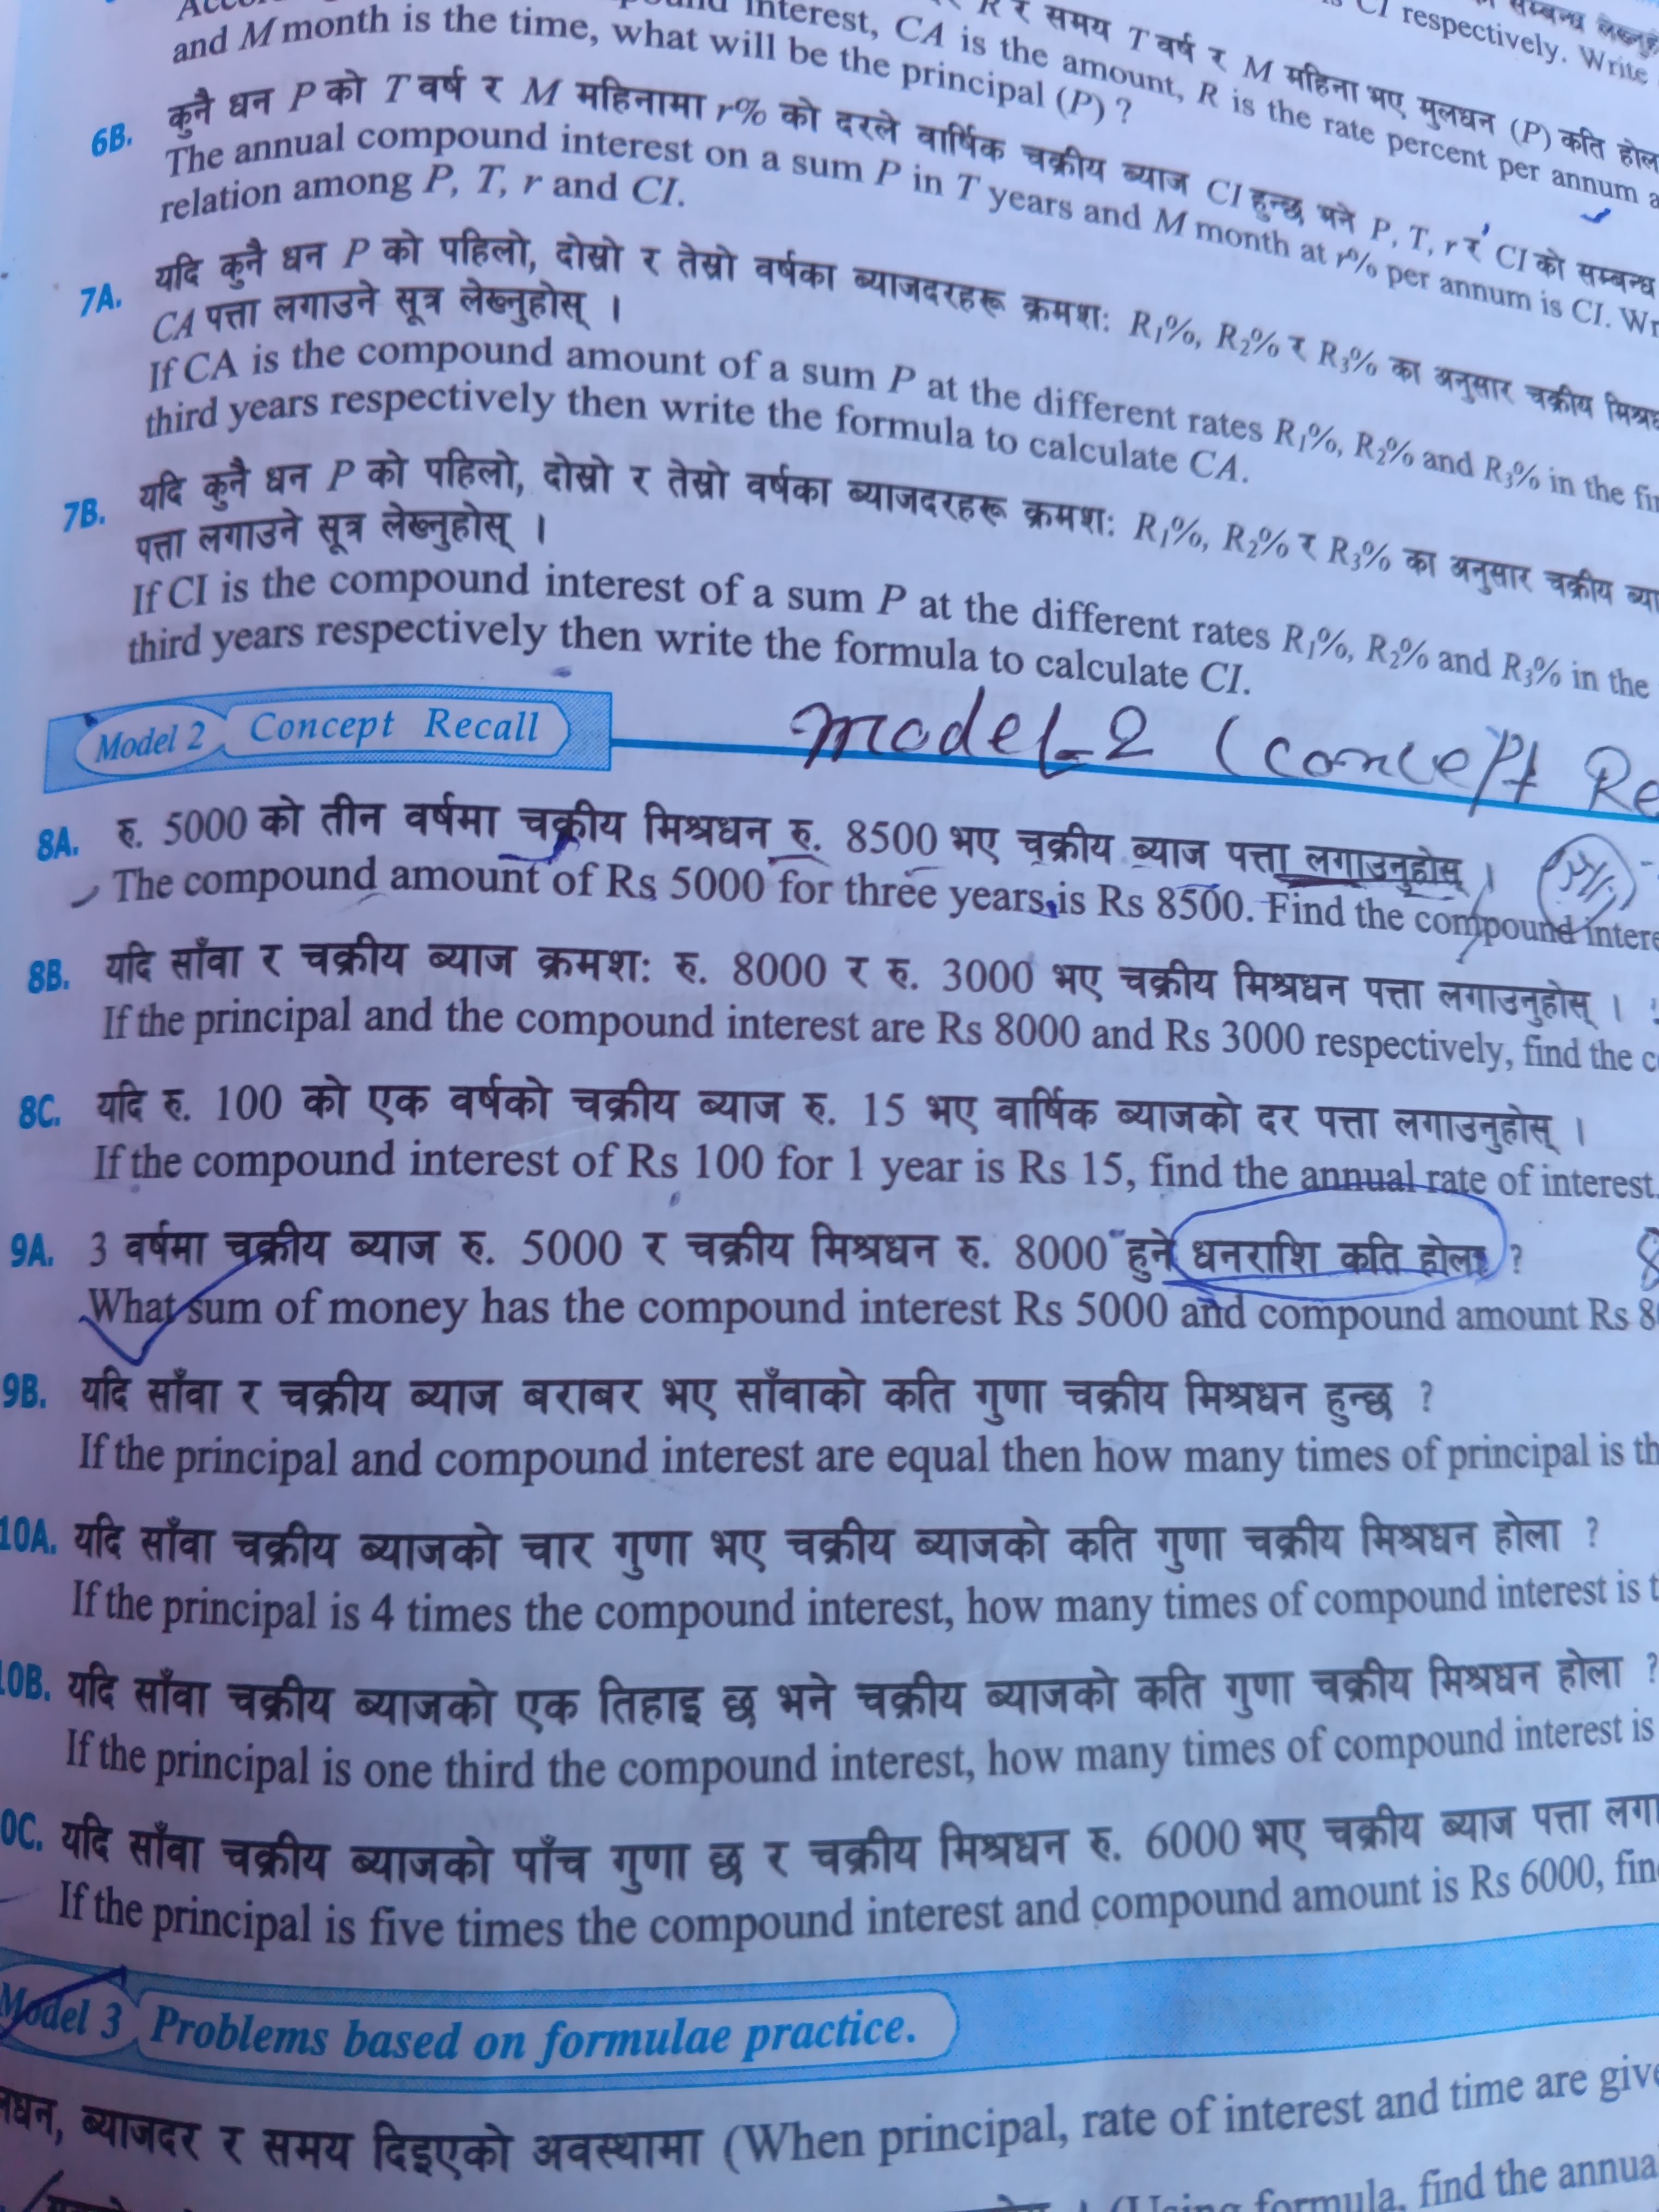 R र समय T वर्ष र M महिना भए मुलधन (P) कति
interest, CA is the amount, R is the rate percent per annum
and M month is the time, what will be the principal (P) ?
CI respectively. Write
6B. कुनै धन P को T वर्ष र M महिनामा r% को दरले वार्षिक चक्रीय ब्याज CI हुन्छ भने P, T, r र CI को सम्बन्ध
The annual compound interest on a sum P in T years and M month at r% per annum is CI.
relation among P, T, r and CI.
7A. यदि कुनै धन P को पहिलो, दोस्रो र तेस्रो वर्षका ब्याजदरहरू क्रमश: R₁%, R₂% र R₃% का अनुसार चक्रीय
CA पत्ता लगाउने सूत्र लेख्नुहोस् ।
If CA is the compound amount of a sum P at the different rates R₁%, R₂% and R₃% in the
third years respectively then write the formula to calculate CA.
7B. यदि कुनै धन P को पहिलो, दोस्रो र तेस्रो वर्षका ब्याजदरहरू क्रमश: R₁%, R₂% र R₃% का अनुसार चक्रीय
पत्ता लगाउने सूत्र लेख्नुहोस् ।
If CI is the compound interest of a sum P at the different rates R₁%, R₂% and R₃% in the
third years respectively then write the formula to calculate CI.
Model 2 Concept Recall
Model-2 (Concept Re
8A. रु. 5000 को तीन वर्षमा चक्रीय मिश्रधन रु. 8500 भए चक्रीय ब्याज पत्ता लगाउनुहोस् ।
The compound amount of Rs 5000 for three years is Rs 8500. Find the compound intere
8B. यदि साँवा र चक्रीय ब्याज क्रमश: रु. 8000 र रु. 3000 भए चक्रीय मिश्रधन पत्ता लगाउनुहोस् ।
If the principal and the compound interest are Rs 8000 and Rs 3000 respectively, find the c
8C. यदि रु. 100 को एक वर्षको चक्रीय ब्याज रु. 15 भए वार्षिक ब्याजको दर पत्ता लगाउनुहोस् ।
If the compound interest of Rs 100 for 1 year is Rs 15, find the annual rate of interest.
9A. 3 वर्षमा चक्रीय ब्याज रु. 5000 र चक्रीय मिश्रधन रु. 8000 हुने धनराशि कति होला ?
What sum of money has the compound interest Rs 5000 and compound amount Rs 8
9B. यदि साँवा र चक्रीय ब्याज बराबर भए साँवाको कति गुणा चक्रीय मिश्रधन हुन्छ ?
If the principal and compound interest are equal then how many times of principal is th
10A. यदि साँवा चक्रीय ब्याजको चार गुणा भए चक्रीय ब्याजको कति गुणा चक्रीय मिश्रधन होला ?
If the principal is 4 times the compound interest, how many times of compound interest is t
10B. यदि साँवा चक्रीय ब्याजको एक तिहाइ छ भने चक्रीय ब्याजको कति गुणा चक्रीय मिश्रधन होला ?
If the principal is one third the compound interest, how many times of compound interest is
0C. यदि साँवा चक्रीय ब्याजको पाँच गुणा छ र चक्रीय मिश्रधन रु. 6000 भए चक्रीय ब्याज पत्ता लगा
If the principal is five times the compound interest and compound amount is Rs 6000, fin
Model 3 Problems based on formulae practice.
धन, ब्याजदर र समय दिइएको अवस्थामा (When principal, rate of interest and time are give
(Using formula, find the annua